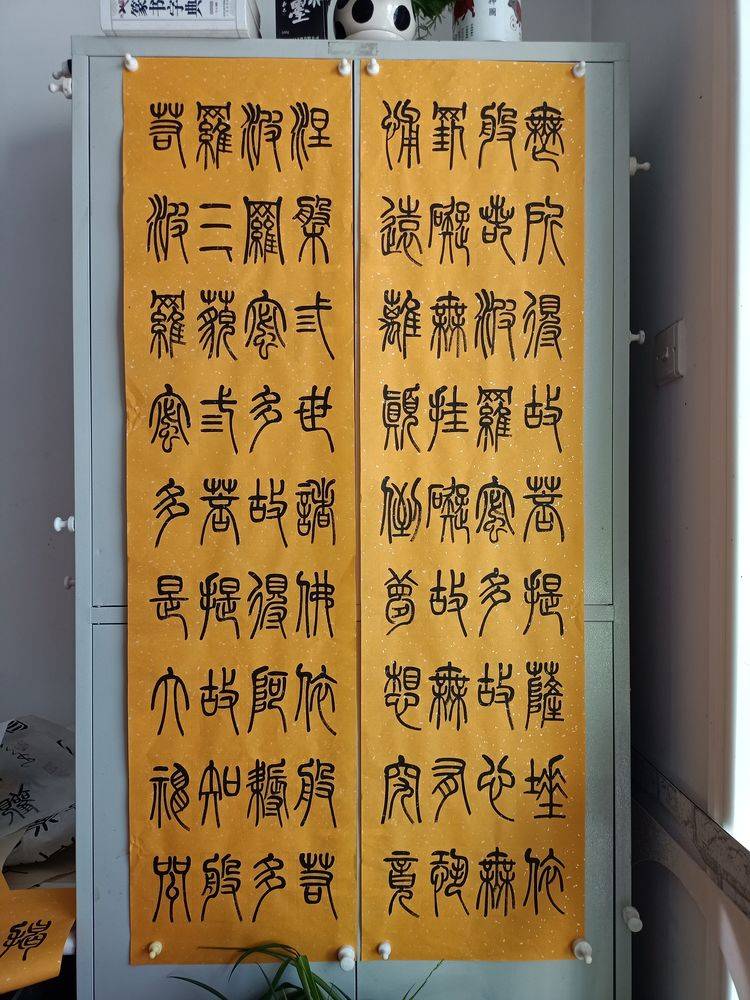 篆书字典
墨
無所得故菩提薩埵依
般若波羅蜜多故心無
罣礙無挂礙故無有恐
悑遠離顛倒夢想究竟
涅槃弎世諸佛依般若
波羅蜜多故得阿耨多
羅三藐弎菩提故知般
若波羅蜜多是大神咒